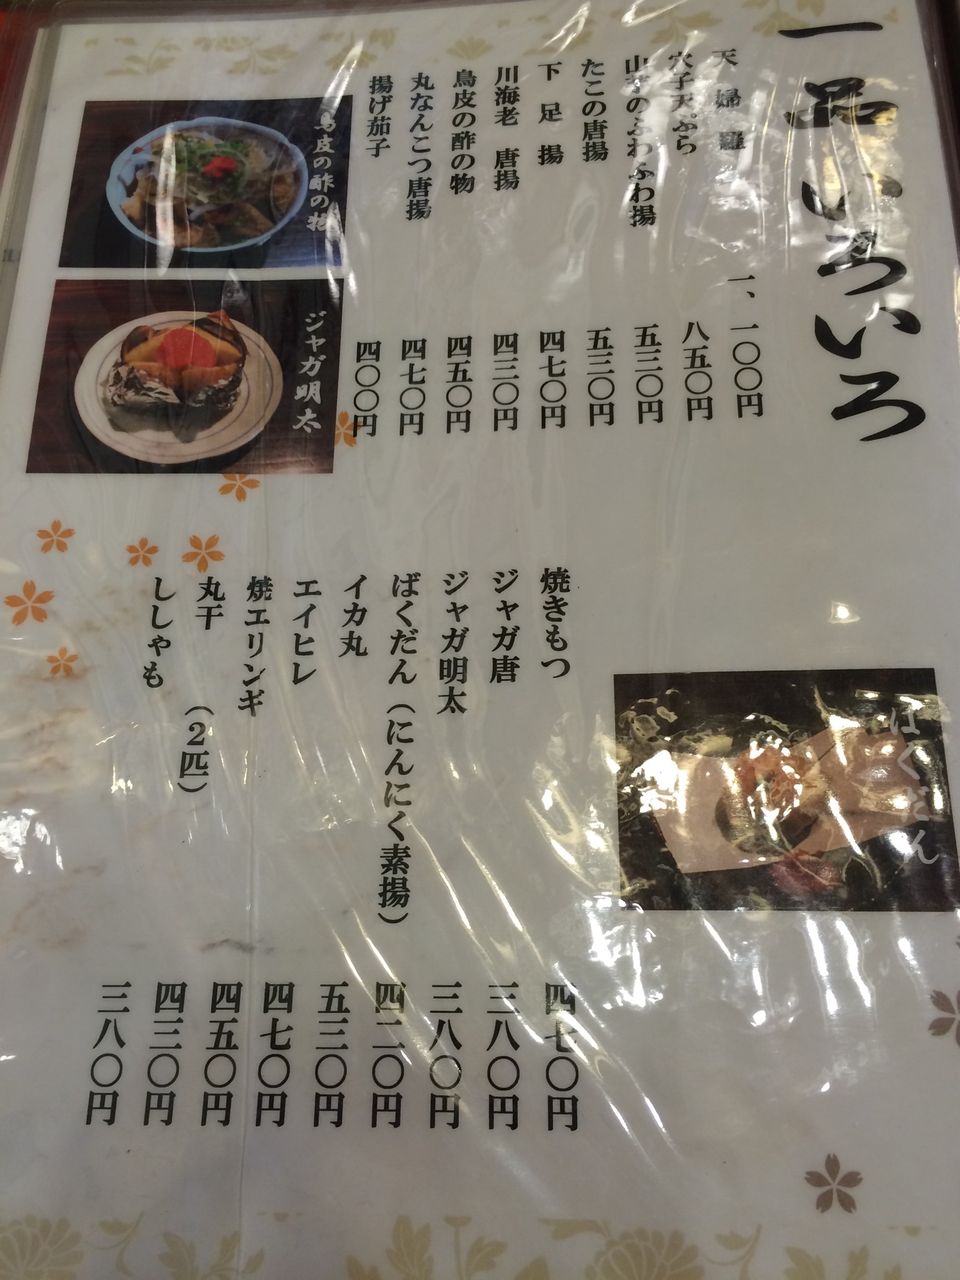 一品いろいろ
天婦羅 一、一〇〇円
穴子天ぷら 八五〇円
山芋のふわふわ揚 五三〇円
たこの唐揚 五三〇円
下足揚 四七〇円
川海老 唐揚 四三〇円
鳥皮の酢の物 四五〇円
丸なんこつ唐揚 四七〇円
揚げ茄子 四〇〇円
鳥皮の酢の物
ジャガ明太
ばくだん
焼きもつ 四七〇円
ジャガ唐 三八〇円
ジャガ明太 三八〇円
ばくだん（にんにく素揚） 四二〇円
イカ丸 五三〇円
エイヒレ 四七〇円
焼エリンギ 四五〇円
丸干（２匹） 四三〇円
ししゃも 三八〇円